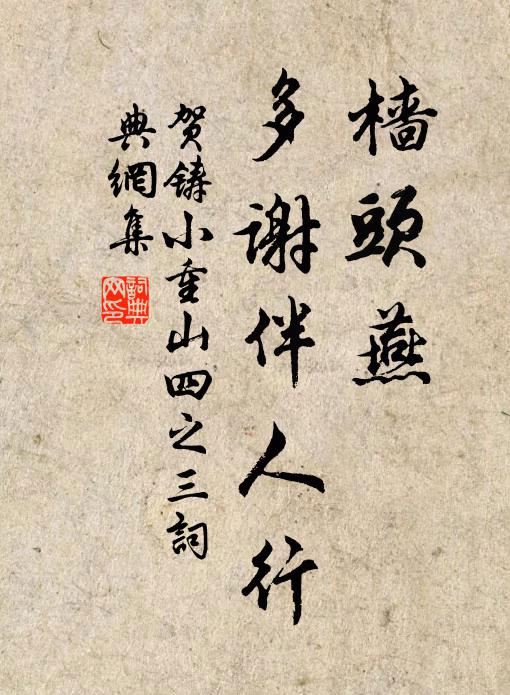 檣頭燕
多謝伴人行
賀鑄小重山四之三詞
典網集
詞典網印